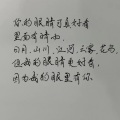 你的眼睛可真好看
里面有晴雨、
日月、山川、江河、云雾、花鸟,
但我的眼睛更好看,
因为我的眼里有你